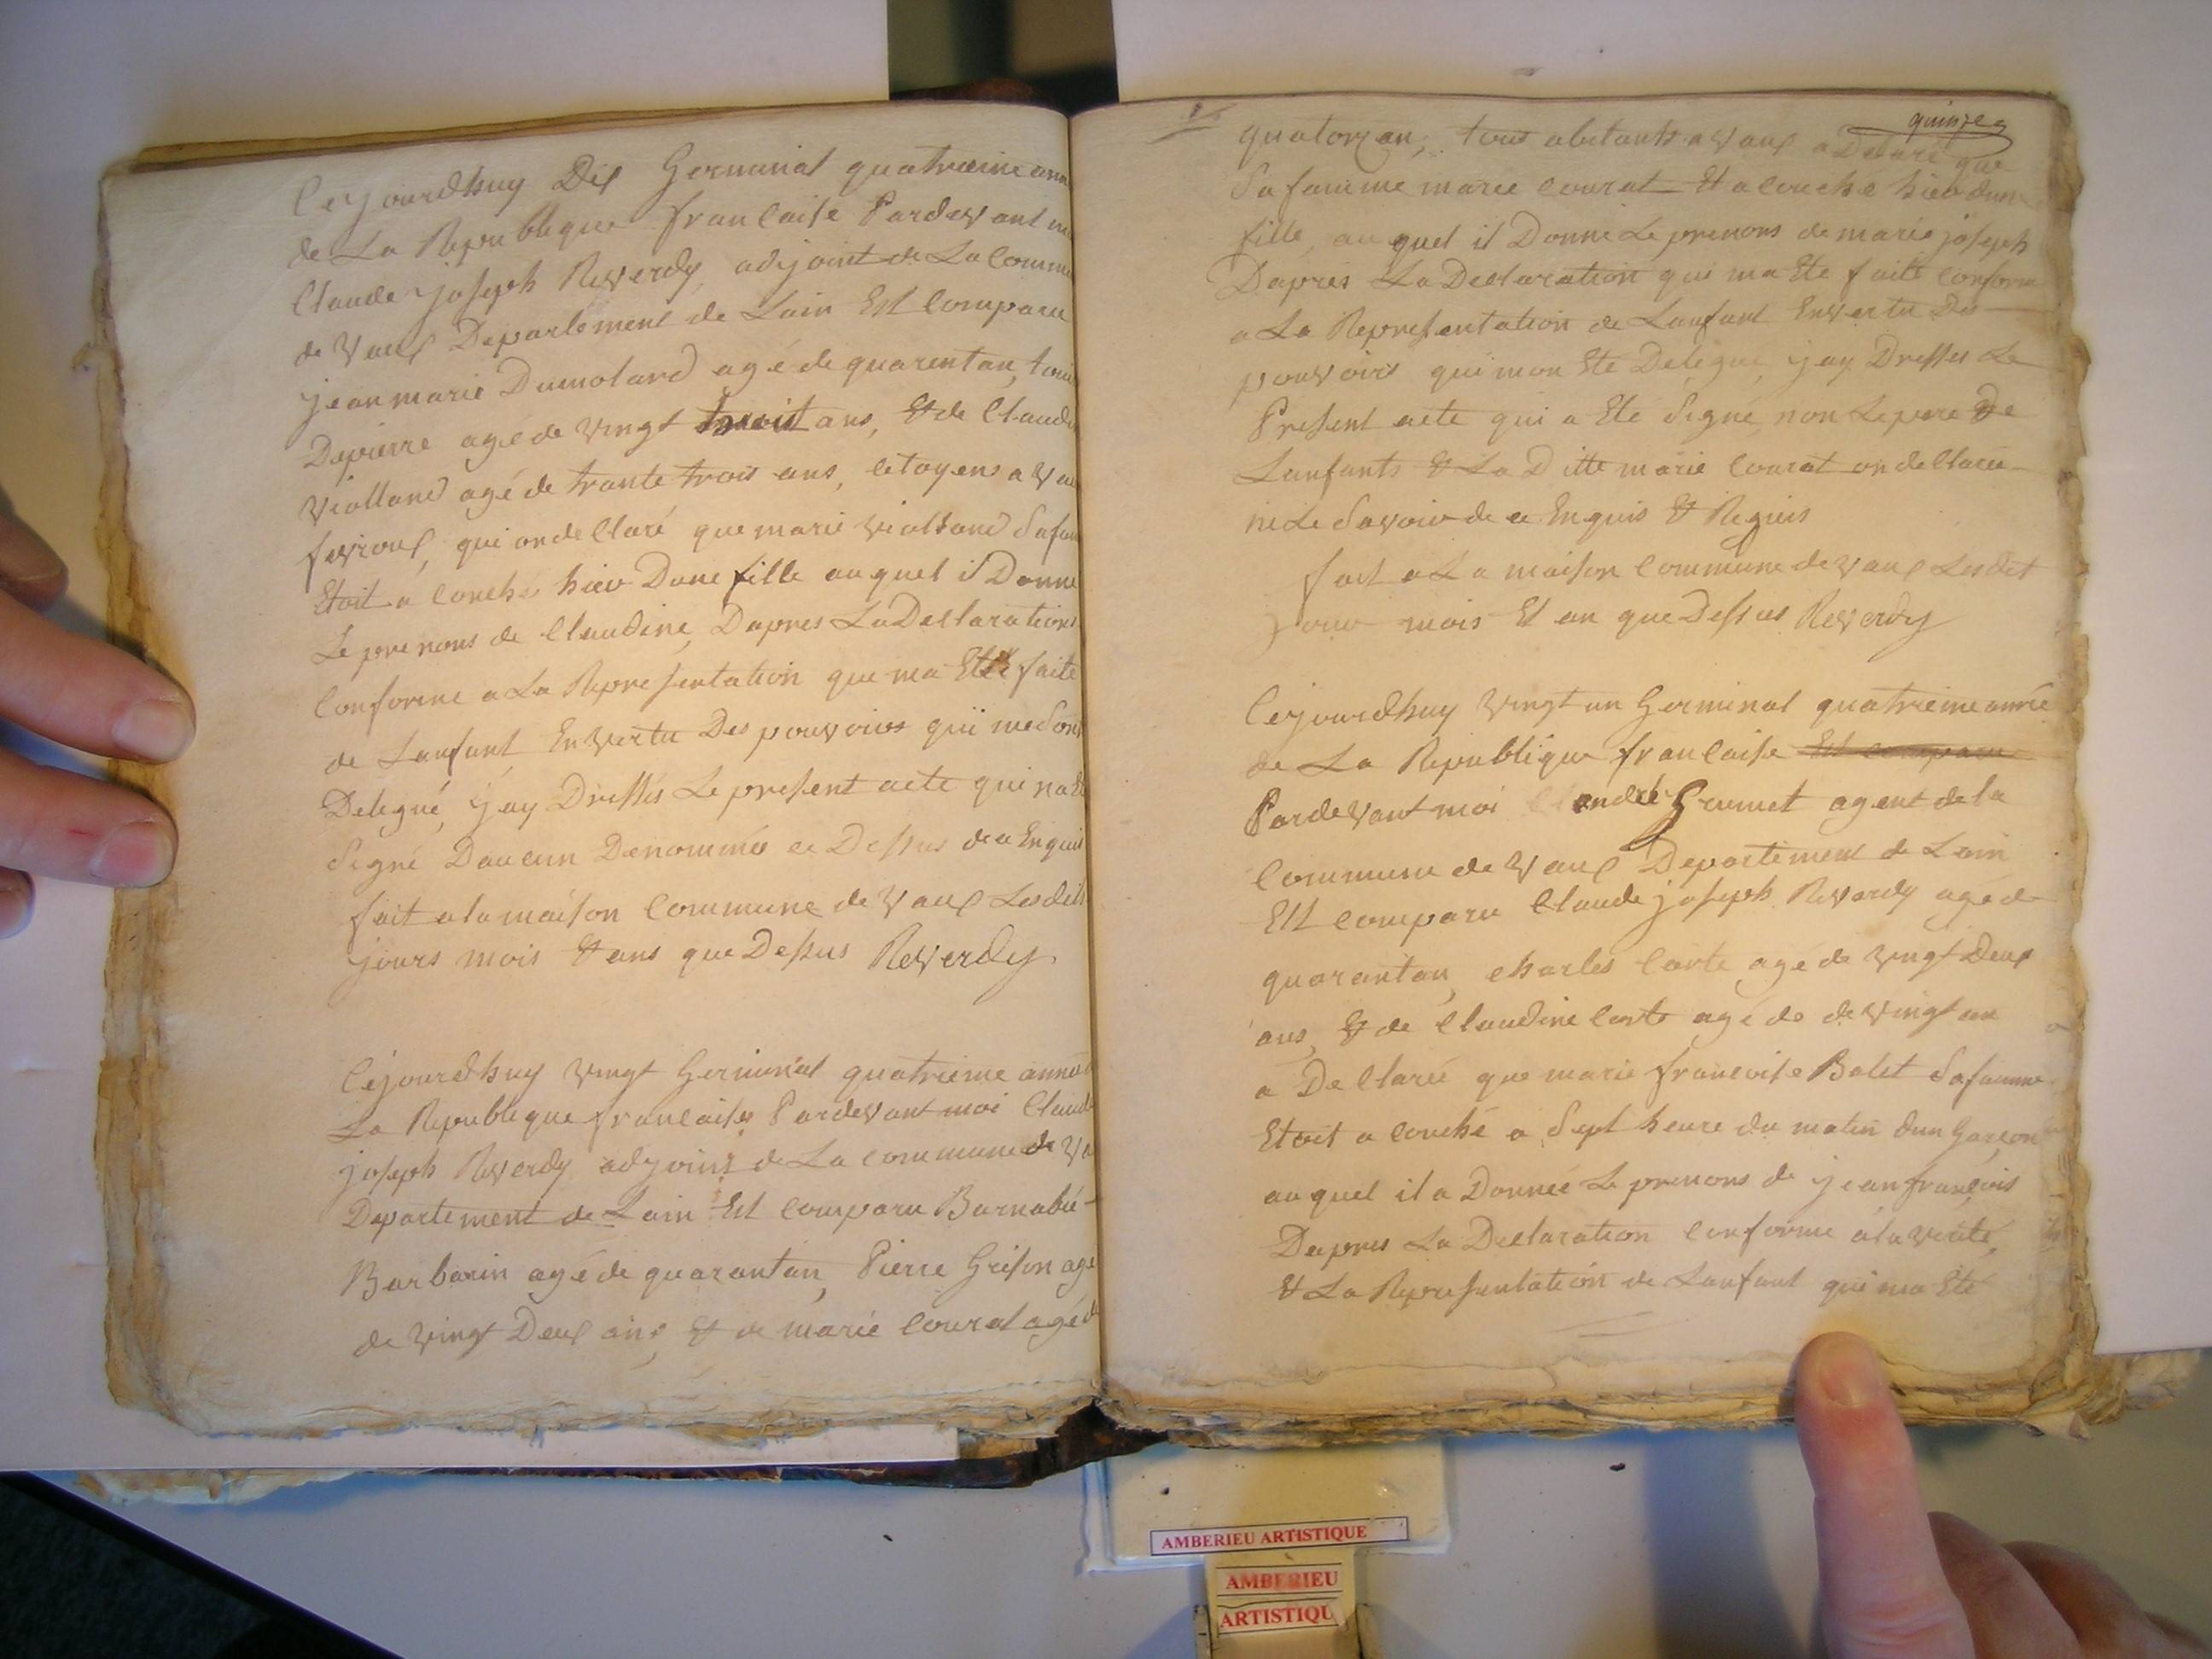 Cejourdhuy Dix Germinal quatrieme anné
de La Republique francaise Pardevant moi
Claude joseph Reverdy adijoint de La Commu
de Vaux Departement de Lain Est Comparu
jean marie Dumolard agé de quarentan, tou
Depierre agé de vingt trois ans, Et de Claud
Violland agé de trante trois ans, Citoyens a Vau
fevroux, qui on declaré que marie violland Safam
Etoit a Couché hier Dune fille auquel il Donne
Le prenons de Claudine, Dapres La Declaration
Conforme a La Representation que ma Etté faite
de Lanfant, En Vertu Des pouvoirs qui me Sont
Delegué, jay Dressés Le present acte qui na E
Signé Daucun Denommés ce Dessus de a Enquis
fait a la maison Commune de Vaux Lesdits
jours mois Et ans que Dessus Reverdy.
Cejourdhuy vingt Germinal quatrieme année
La Republique francaise Pardevant moi Claude
joseph Reverdy adjoint de La Commune de Va
Departement de Lain Est Comparu Barnabé
Barbarin agé de quarantan, Pierre Grison agé
de vingt Deux ans, Et de marie Courat agé d
quinze
quatorzan, tous abitants a Vaux a Declaré que
Safamme marie Courat Et a Couché hier dun
fille, auquel il Donne Le prenons de marie joseph
Dapres La Declaration qui ma Ete faite Conform
a La Representation de Lanfant En vertu Des
pouvoirs qui mon Ete Delegue, jay Dresser Le
Present acte qui a Ete Signé, non Le pere De
Lanfants Et La Ditte marie Courat on declaré
ne Le Savoir de ce Enquis Et Requis
fait a La maison Commune de Vaux Lesdit
jour mois Et an que Dessus Reverdy
Cejourdhuy Vingt un Germinal quatrieme année
de La Republique francaise Est comparu
Pardevant moi andré Grumet agent de la
Commune de Vaux Departement de Lain
Est comparu Claude joseph Reverdy agé d
quarantan, charles Carte agé de vingt Deux
ans, Et de Claudine Carte agé de de vingt an
a Declaré que marie francoise Balet Safamme
Etoit a Couché a Sept heure du matin dun Garcon
auquel il a Donnée Le prenons de jean francois
Dapres La Declaration Conforme a la verité,
Et La Representation de Lanfant qui ma Eté
AMBERIEU ARTISTIQUE
AMBERIEU
ARTISTIQU